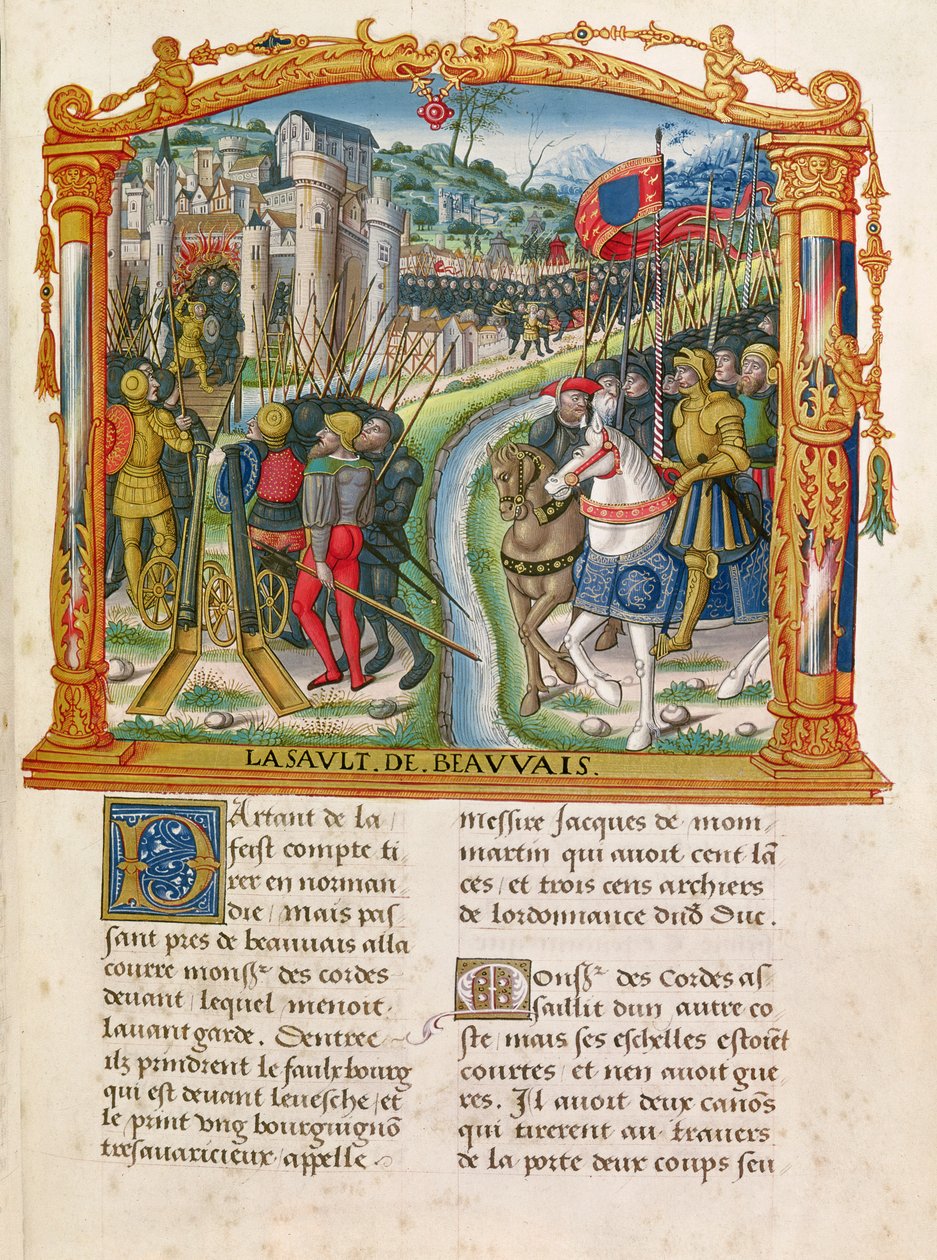 LASAULT. DE. BEAVVAIS.
Partant de la
feist compte ti
rer en norman
die / Mais pas
sant pres de beauvais alla
courre monsr des cordes
devant / lequel menoit
lavant garde. Dentree
ilz prindrent le faulxbourg
qui est devant levesche / et
le print ung bourguignõ
tresavaricieux / appelle
messire Jacques de mom
martin qui avoit cent lã
ces / et trois cens archiers
de lordonnance dudõ Duc.
Monsr des Cordes as
saillit dun autre co
ste / mais ses eschelles estoiẽt
courtes / et nen avoit gue
res. Il avoit deux canõs
qui tirerent au travers
de la porte deux coups seu